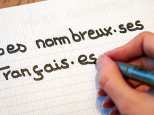 Des nombreux·ses
Français·es